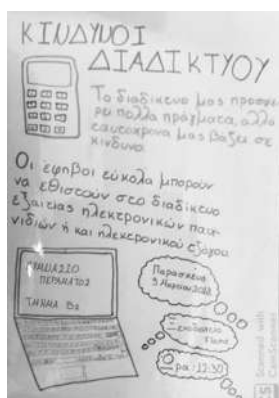 ΚΙΝΔΥΝΟΙ
ΔΙΑΔΙΚΤΥΟΥ
Το διαδίκτυο μας προσφέ
ρει πολλα πράγματα, αλλα
ταυτοχρονα μας βάζει σε
κίνδυνο.
Οι έφηβοι εύκολα μπορούν
να εθιστούν στο διαδίκτυο
εξαιτίας ηλεκτρονικών παι-
νιδιών ή και ηλεκτρονικού τζόγου
ΓΥΜΝΑΣΙΟ
ΠΕΡΑΜΑΤΟΣ
ΤΜΗΜΑ Β2
Παρασκευη
9 Μαρτιου 2018
Ξενοδοχείο
Ώρα: 12:30
Scanned with
CamScanner
CS